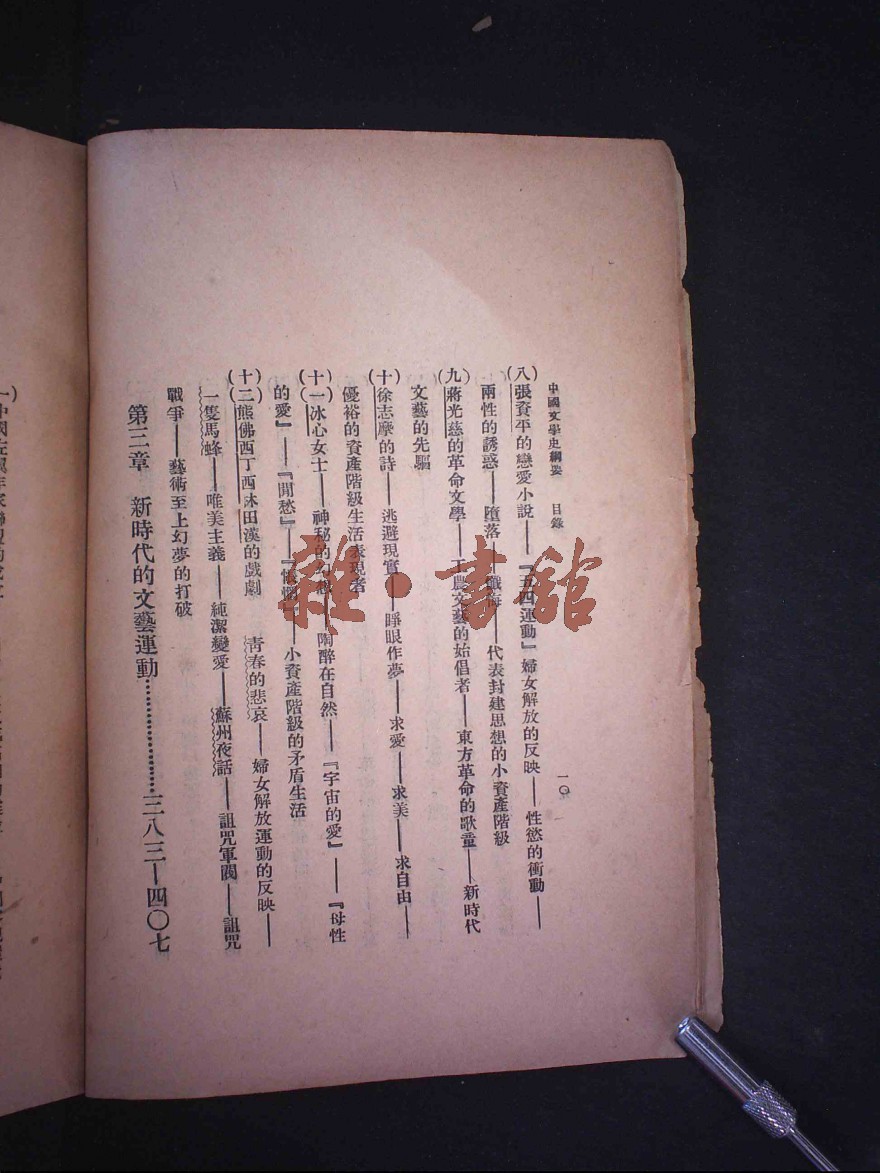 中國文學史綱要　目錄　一〇
(八)張資平的戀愛小說——『五四運動』婦女解放的反映——性慾的衝動——
兩性的誘惑——墮落——懺悔——代表封建思想的小資產階級
(九)蔣光慈的革命文學——工農文藝的始倡者——東方革命的歌童——新時代
文藝的先驅
(十)徐志摩的詩——逃避現實——睜眼作夢——求愛——求美——求自由——
優裕的資產階級生活表現者
(十一)冰心女士——神秘的幻想——陶醉在自然——『宇宙的愛』——『母性
的愛』——『閒愁』————小資產階級的矛盾生活
(十二)熊佛西丁西林田漢的戲劇　青春的悲哀——婦女解放運動的反映——
一隻馬蜂——唯美主義——純潔戀愛——蘇州夜話——詛咒軍閥——詛咒
戰爭——藝術至上幻夢的打破
第三章　新時代的文藝運動……………………三八三—四〇七
雜·書館